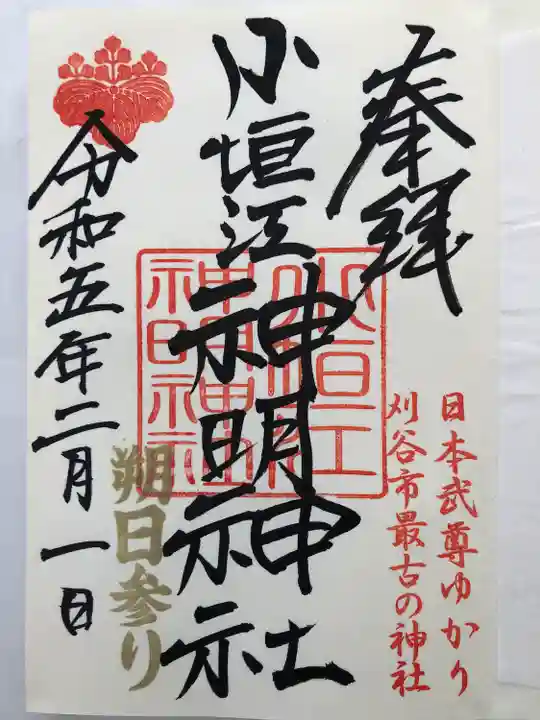 奉拝
日本武尊ゆかり
刈谷市最古の神社
小垣江神明神社
小垣江
神明神社
朔日参り
令和五年二月一日